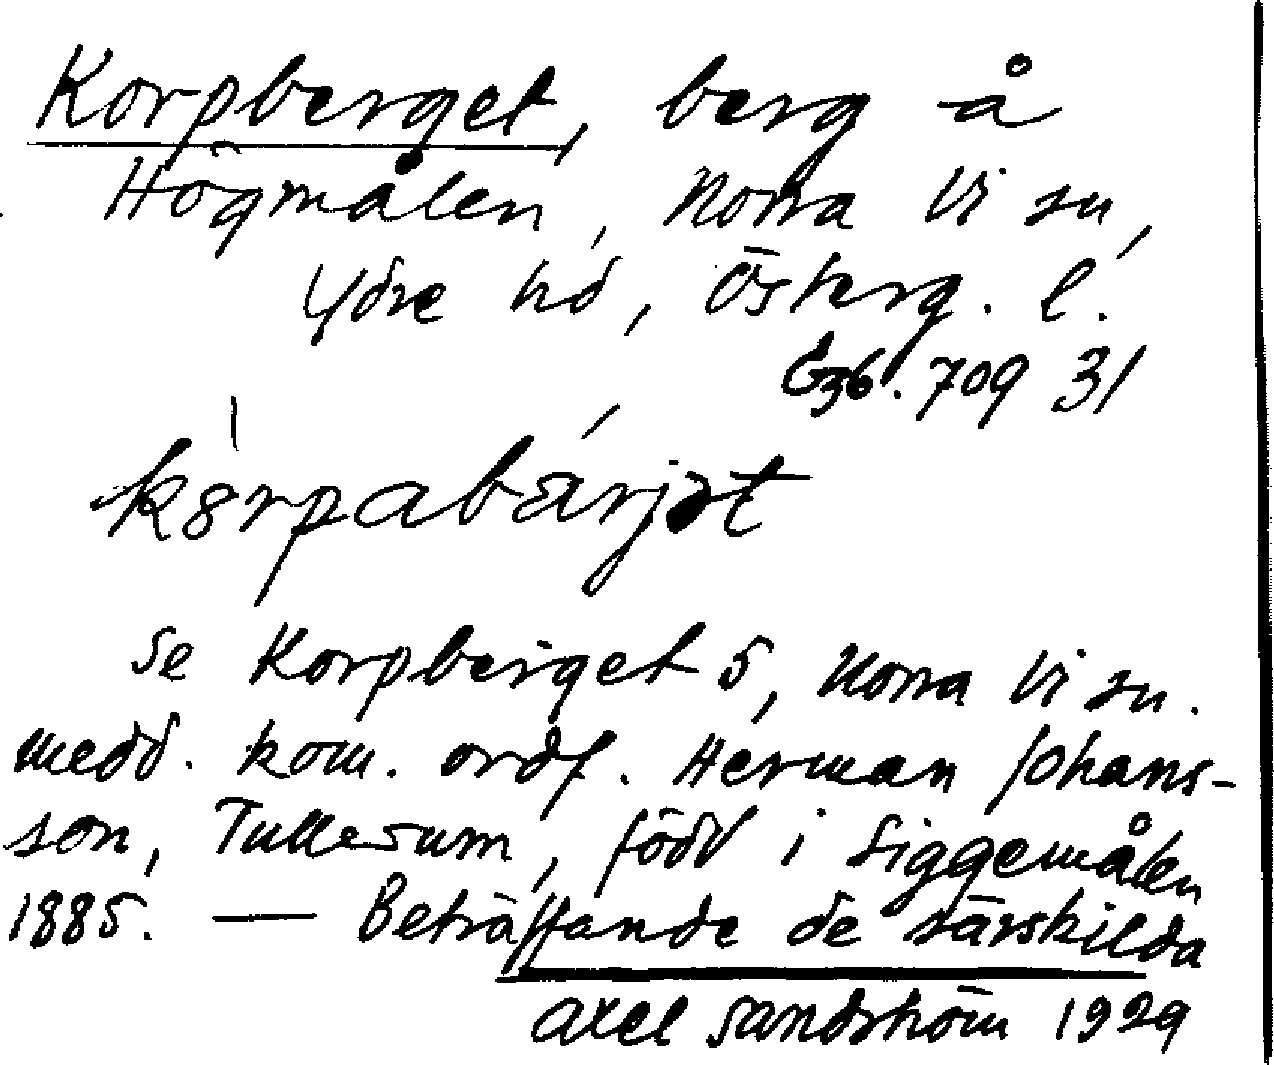 Korpberget, berg å
Högmålen, Norra Vi sn,
Ydre hd, Österg. l.
G36. 709 31
kȣrpabärjət
Se Korpberget 5, Norra Vi sn.
medd. kom. ordf. Herman Johans-
son, Tullerum, född i Siggemålen
1885. — Beträffande de särskilda
Axel Sandström 1929